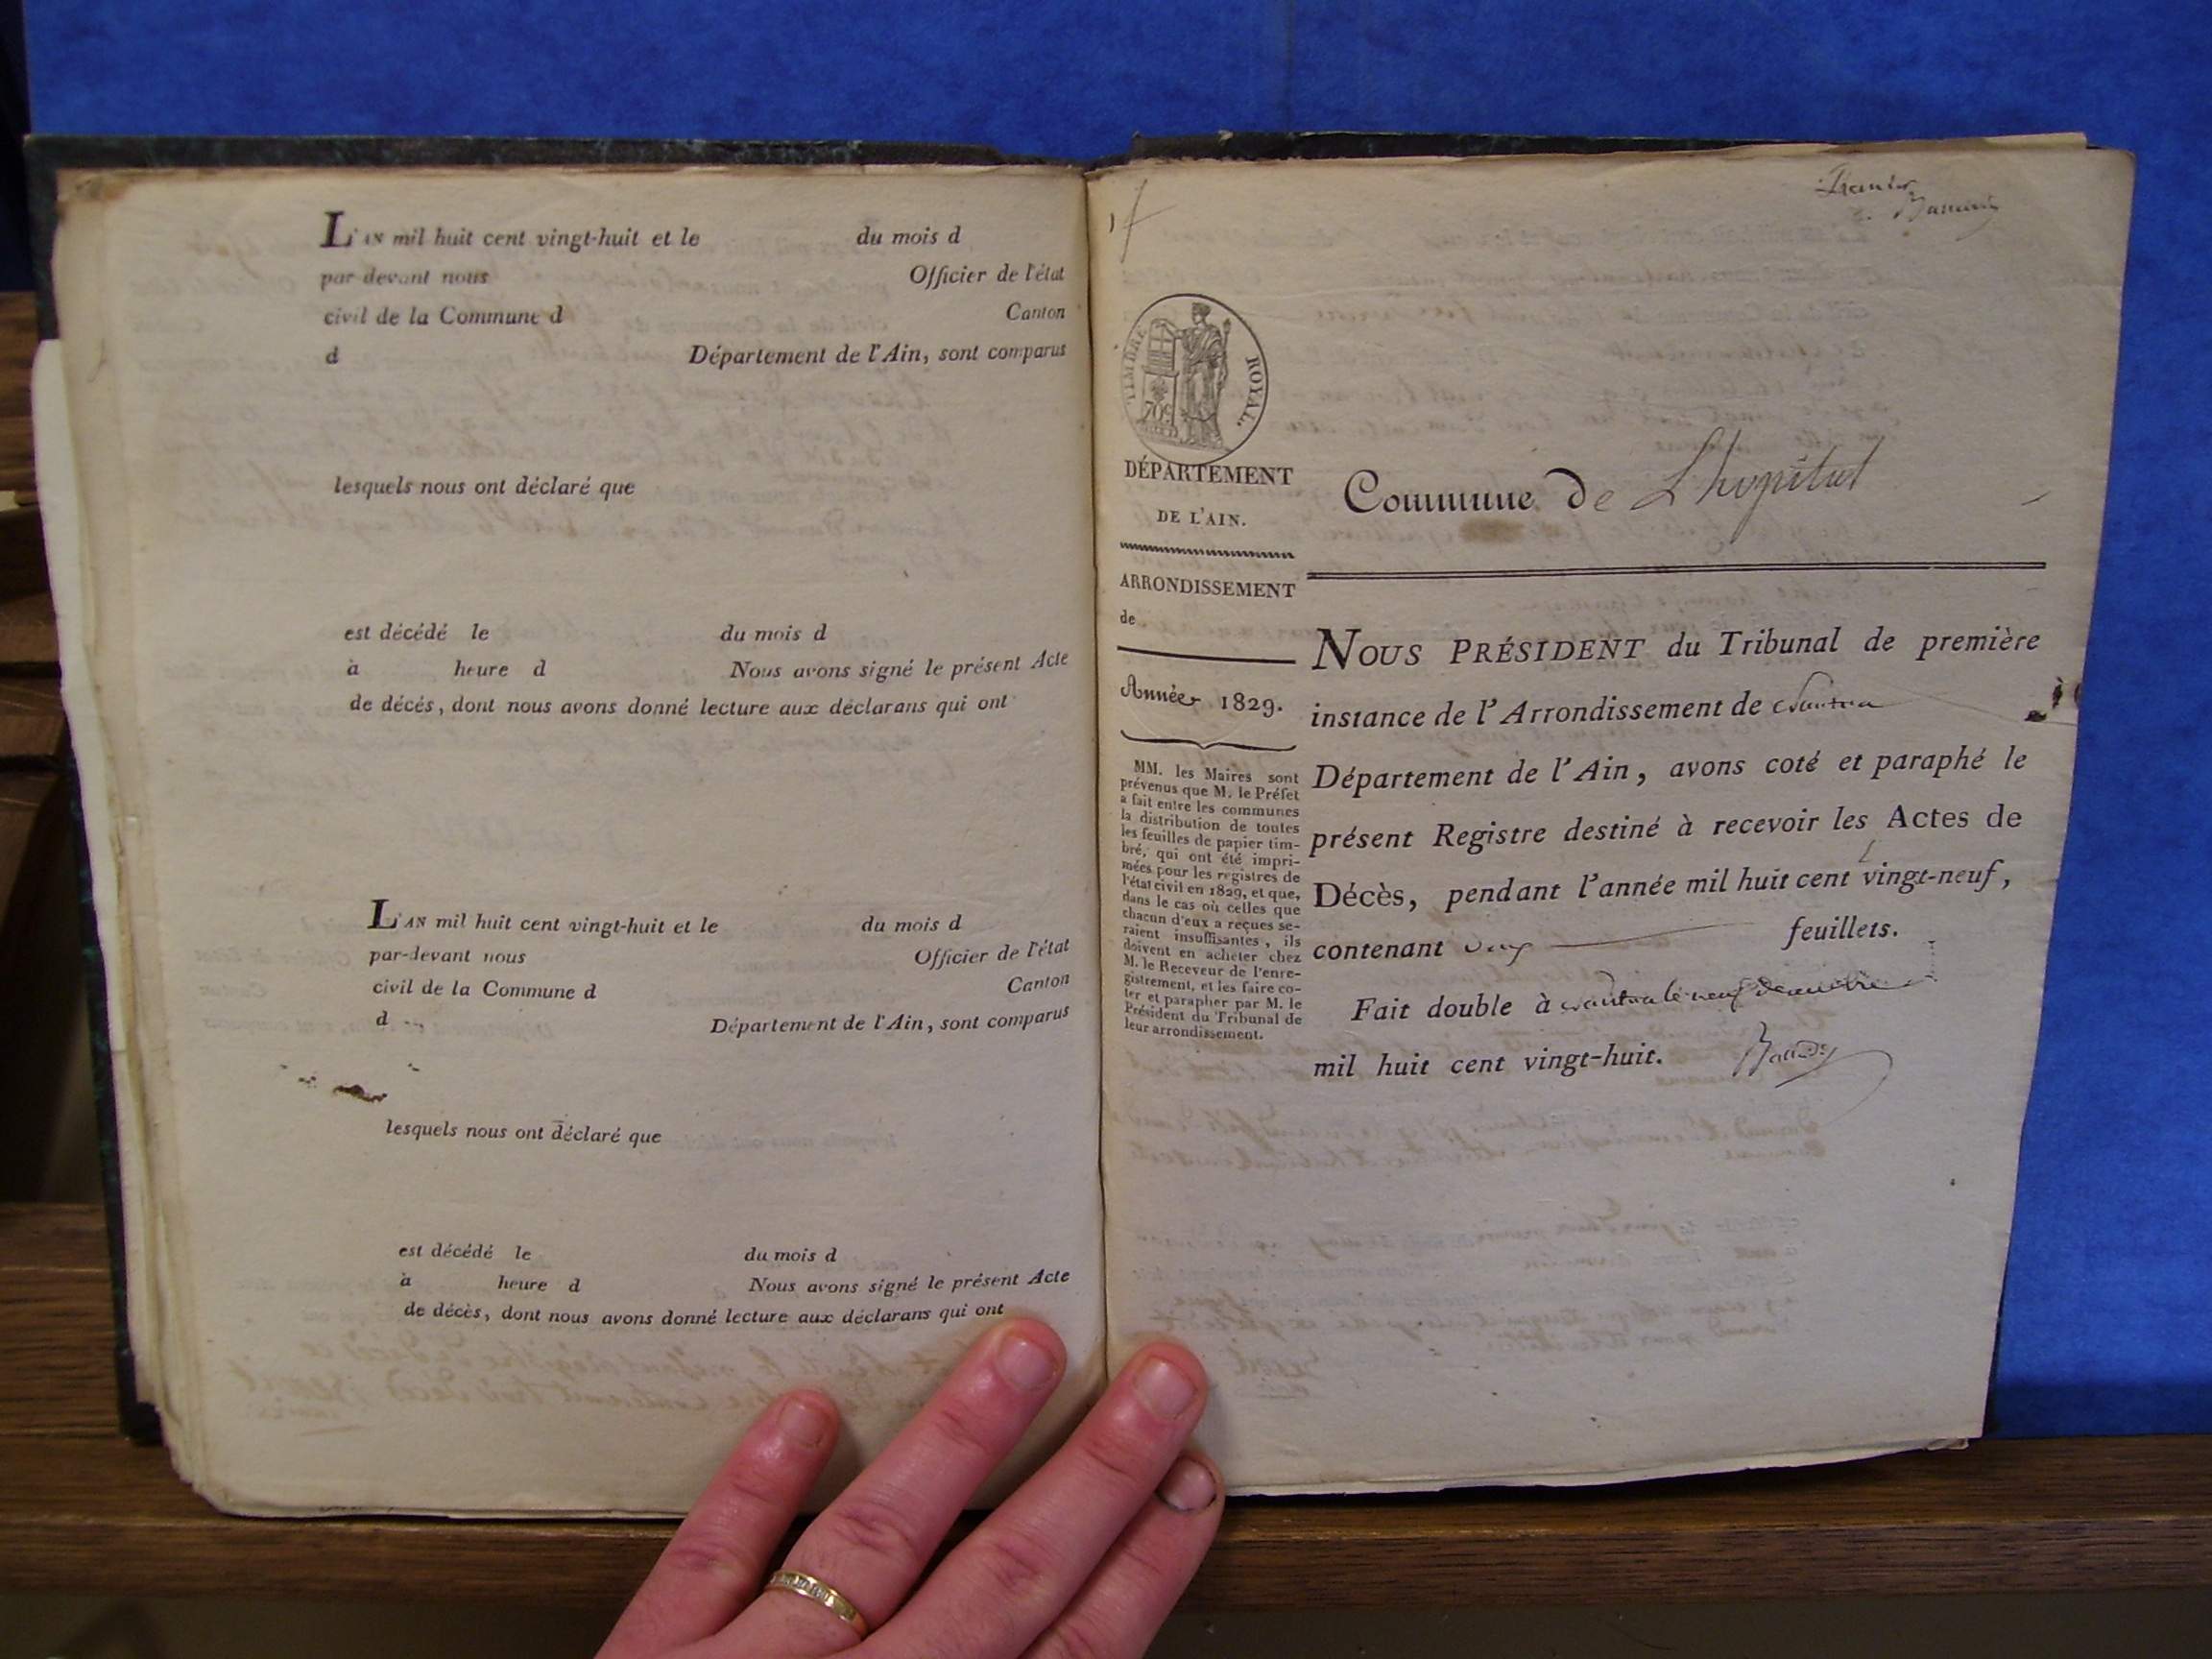 L'AN mil huit cent vingt-huit et le du mois d
par-devant nous Officier de l'état
civil de la Commune d Canton
d Département de l'Ain, sont comparus
lesquels nous ont déclaré que
est décédé le du mois d
à heure d Nous avons signé le présent Acte
de décès, dont nous avons donné lecture aux déclarans qui ont
L'AN mil huit cent vingt-huit et le du mois d
par-devant nous Officier de l'état
civil de la Commune d Canton
d Département de l'Ain, sont comparus
lesquels nous ont déclaré que
est décédé le du mois d
à heure d Nous avons signé le présent Acte
de décès, dont nous avons donné lecture aux déclarans qui ont
TIMBRE ROYAL.
709
DÉPARTEMENT
DE L'AIN.
ARRONDISSEMENT
de
Année 1829.
MM. les Maires sont
prévenus que M. le Préfet
a fait entre les communes
la distribution de toutes
les feuilles de papier tim-
bré, qui ont été impri-
mées pour les registres de
l'état civil en 1829, et que,
dans le cas où celles que
chacun d'eux a reçues se-
raient insuffisantes, ils
doivent en acheter chez
M. le Receveur de l'enre-
gistrement, et les faire co-
ter et parapher par M. le
Président du Tribunal de
leur arrondissement.
Commune de L'hopital
NOUS PRÉSIDENT du Tribunal de première
instance de l'Arrondissement de Nantua
Département de l'Ain, avons coté et paraphé le
présent Registre destiné à recevoir les Actes de
Décès, pendant l'année mil huit cent vingt-neuf,
contenant feuillets.
Fait double à nantua le neuf
mil huit cent vingt-huit.